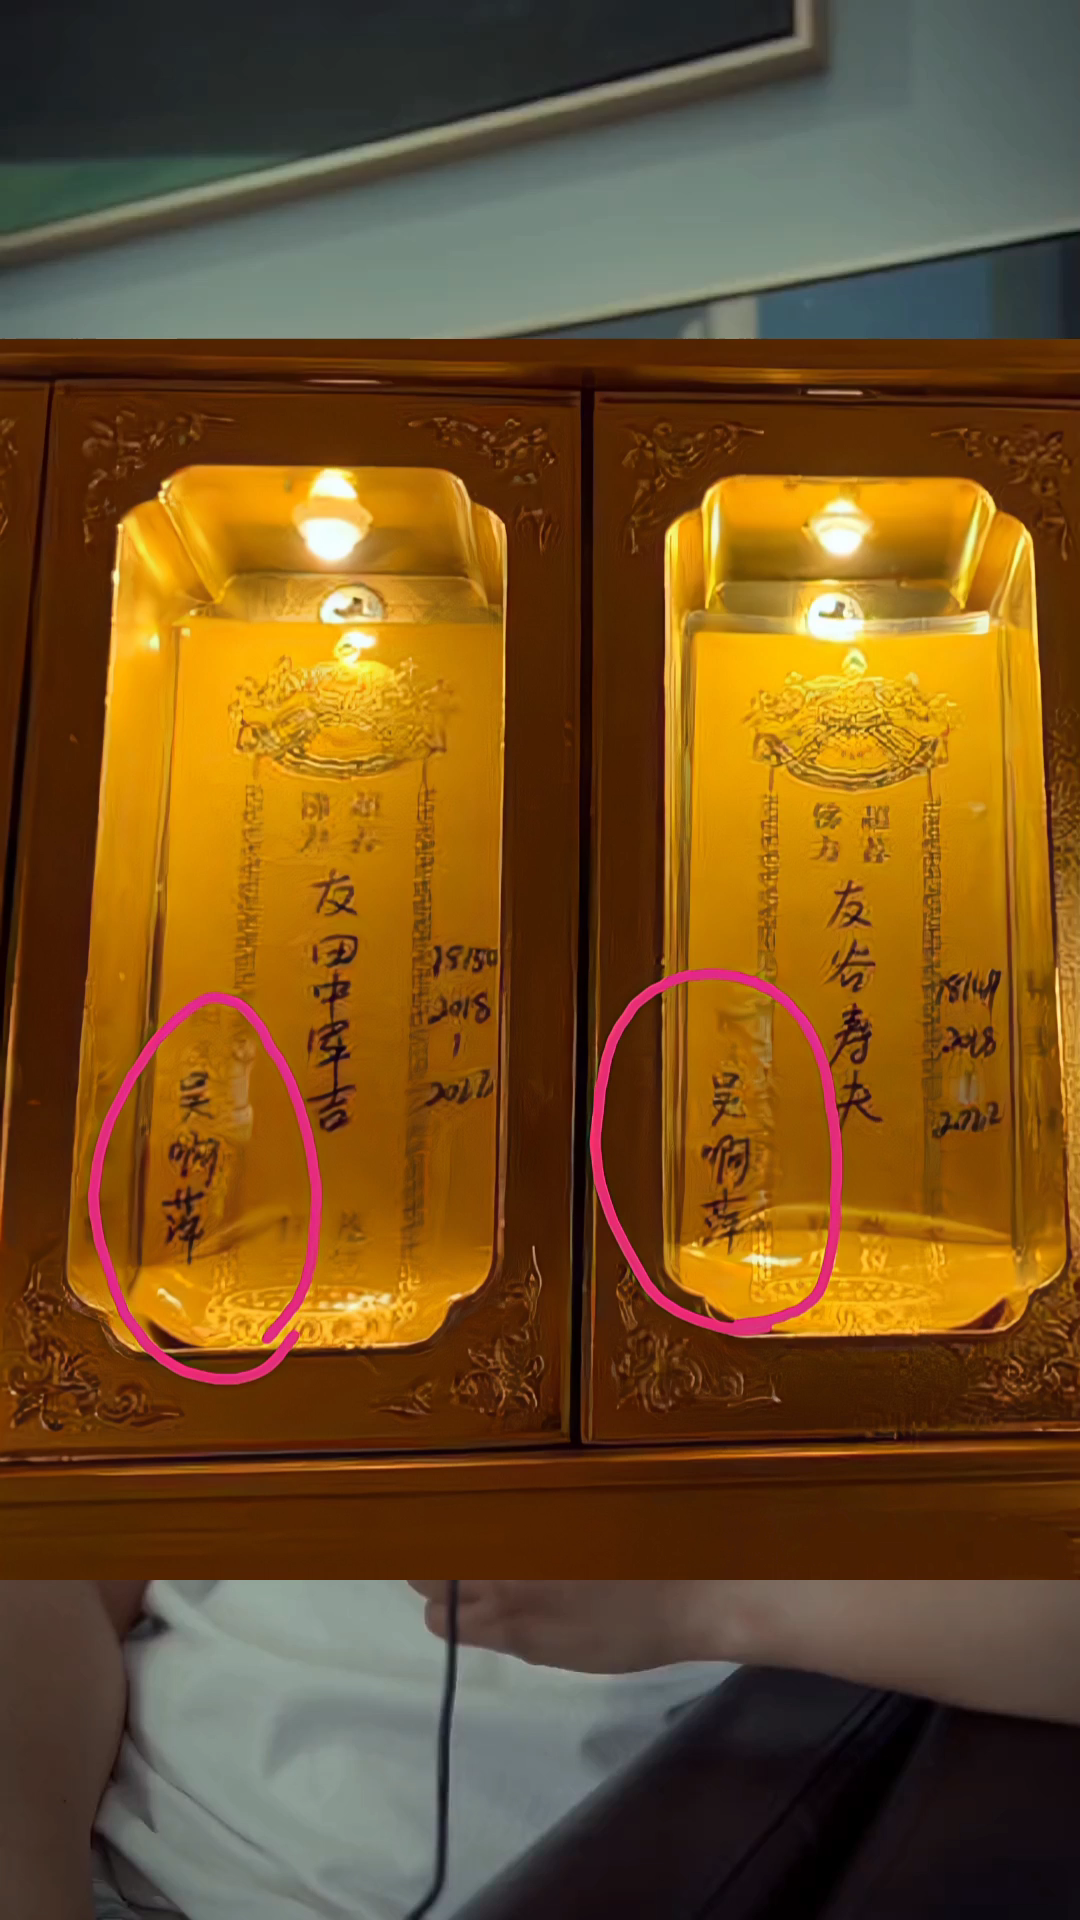 佛力
超荐
友田中军吉
15150
2018
|
2022
吴啊萍
佛力
超荐
友谷寿夫
15149
2018
|
2022
吴啊萍